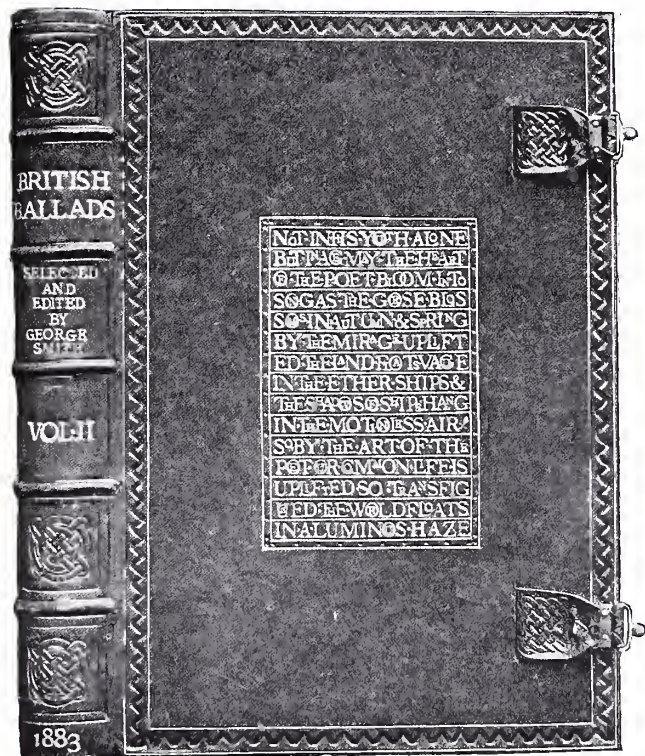 BRITISH
BALLADS
SELECTED
AND
EDITED
BY
GEORGE
SMITH
VOL·II
1883
NOT·IN·HIS·YOUTH·ALONE
BUT·IN·AGE·MAY·THE·HEART
OF·THE·POET·BLOOM·INTO
SONG·AS·THE·GORSE·BLOS
SOMS·IN·AUTUMN·&·SPRING
BY·THE·MIRAGE·UPLIFT
ED·THE·LAND·FLOATS·VAGUE
IN·THE·ETHER·SHIPS·&
THE·SHADOWS·OF·SHIPS·HANG
IN·THE·MOTIONLESS·AIR·
SO·BY·THE·ART·OF·THE
POET·OUR·COMMON·LIFE·IS
UPLIFTED·SO·TRANSFIG
URED·THE·WORLD·FLOATS
IN·A·LUMINOUS·HAZE